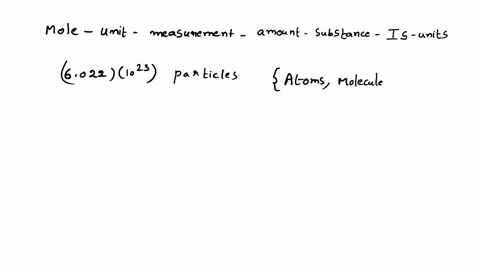 Mole - unit - measurement - amount - substance - IS - units
(6.022)(10²³) particles {Atoms, Molecule